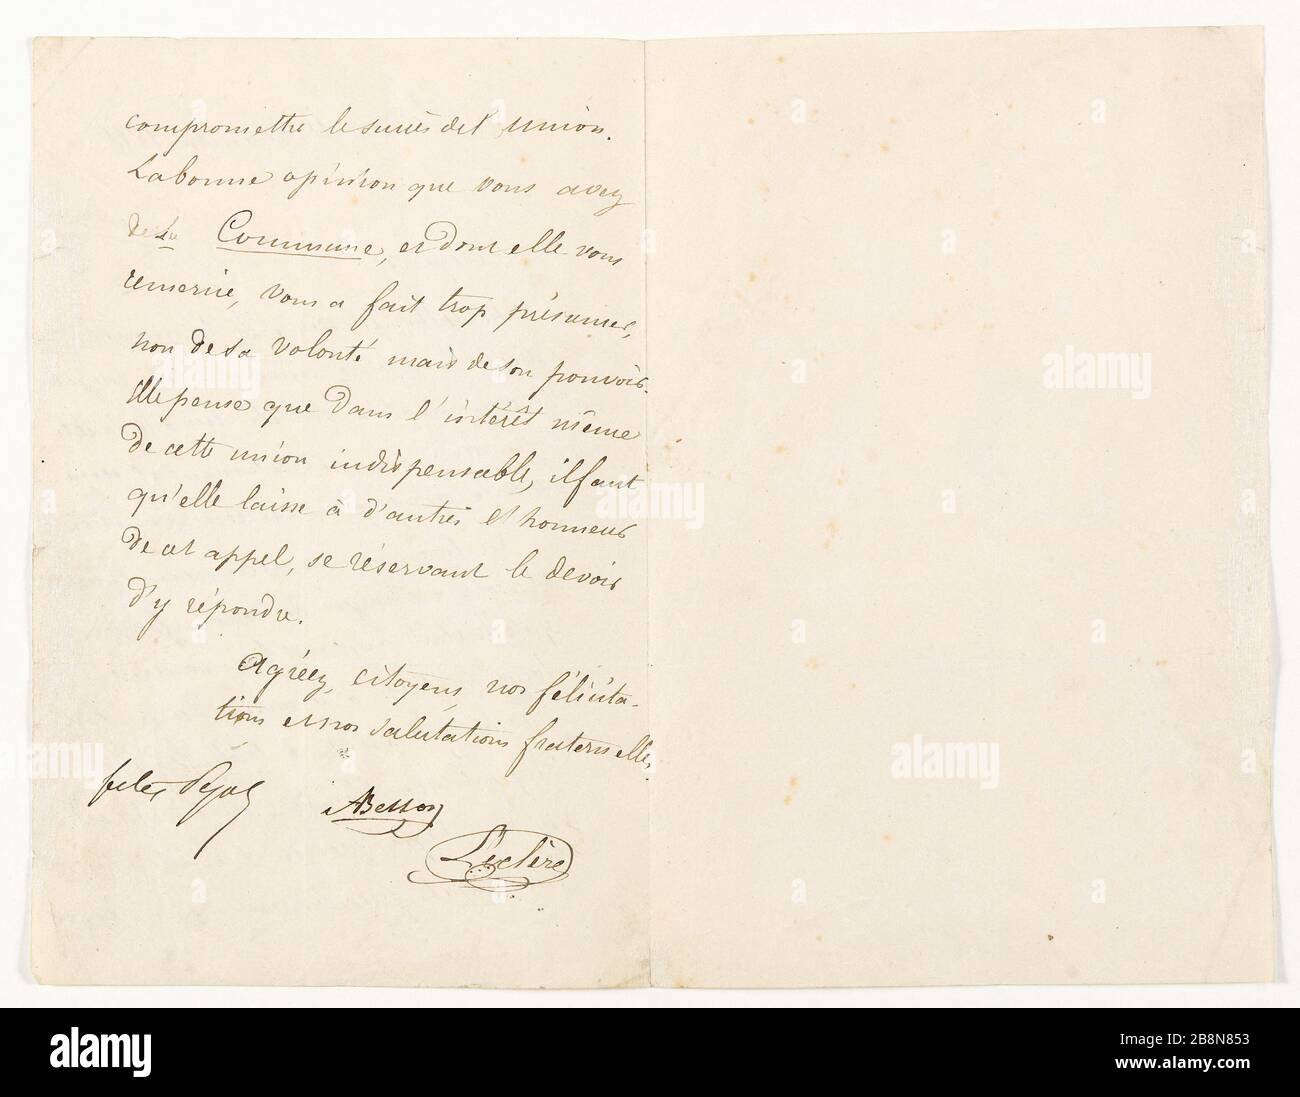 compromettre le succès de l'union.
La bonne opinion que vous avez
de la Commune, et dont elle vous
remercie, vous a fait trop présumer,
non de sa volonté mais de son pouvoir.
Elle pense que dans l'intérêt même
de cette union indispensable, il faut
qu'elle laisse à d'autres l'honneur
de cet appel, se réservant le devoir
d'y répondre.
Agréez, citoyens, nos félicita-
tions et nos salutations fraternelles,
felix Pyat
ABesson
Leclère
alamy
www.alamy.com
Image ID: 2B8N853